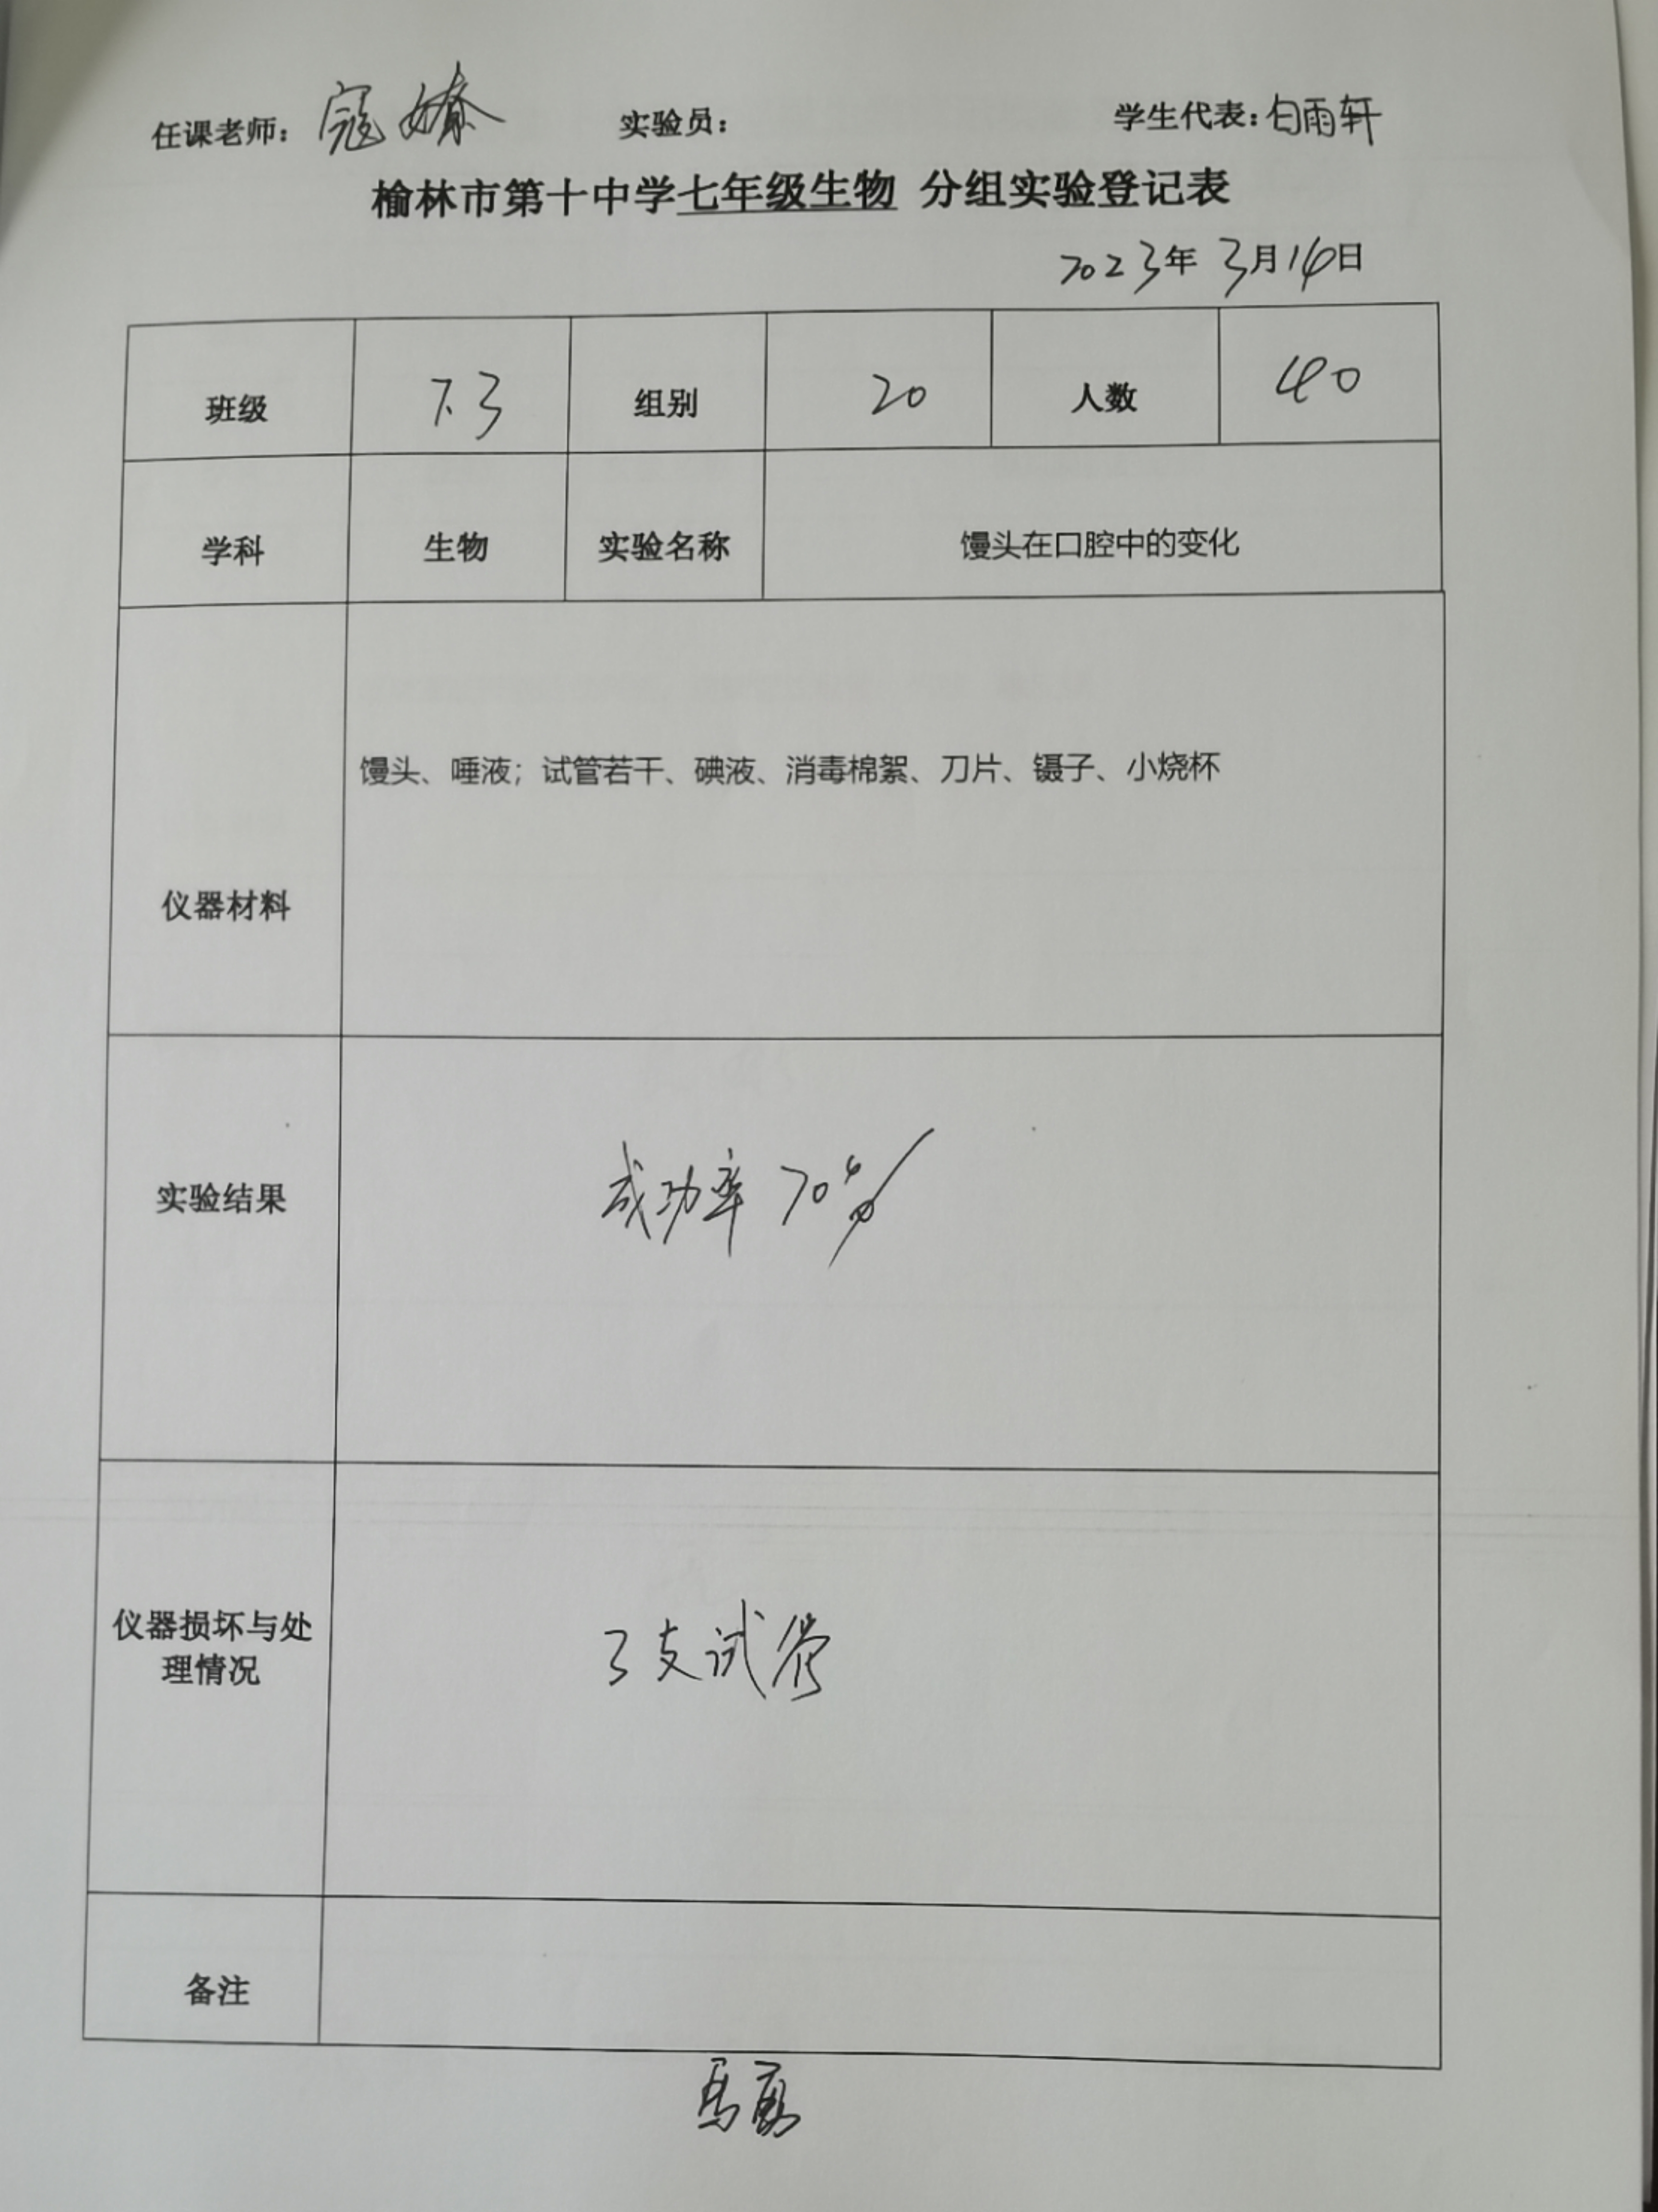 任课老师：寇婧 实验员： 学生代表：白雨轩
榆林市第十中学七年级生物 分组实验登记表
2023年 3月14日
班级 7.3 组别 20 人数 40
学科 生物 实验名称 馒头在口腔中的变化
馒头、唾液；试管若干、碘液、消毒棉絮、刀片、镊子、小烧杯
仪器材料
实验结果 成功率 70%
仪器损坏与处
理情况
3支试管
备注